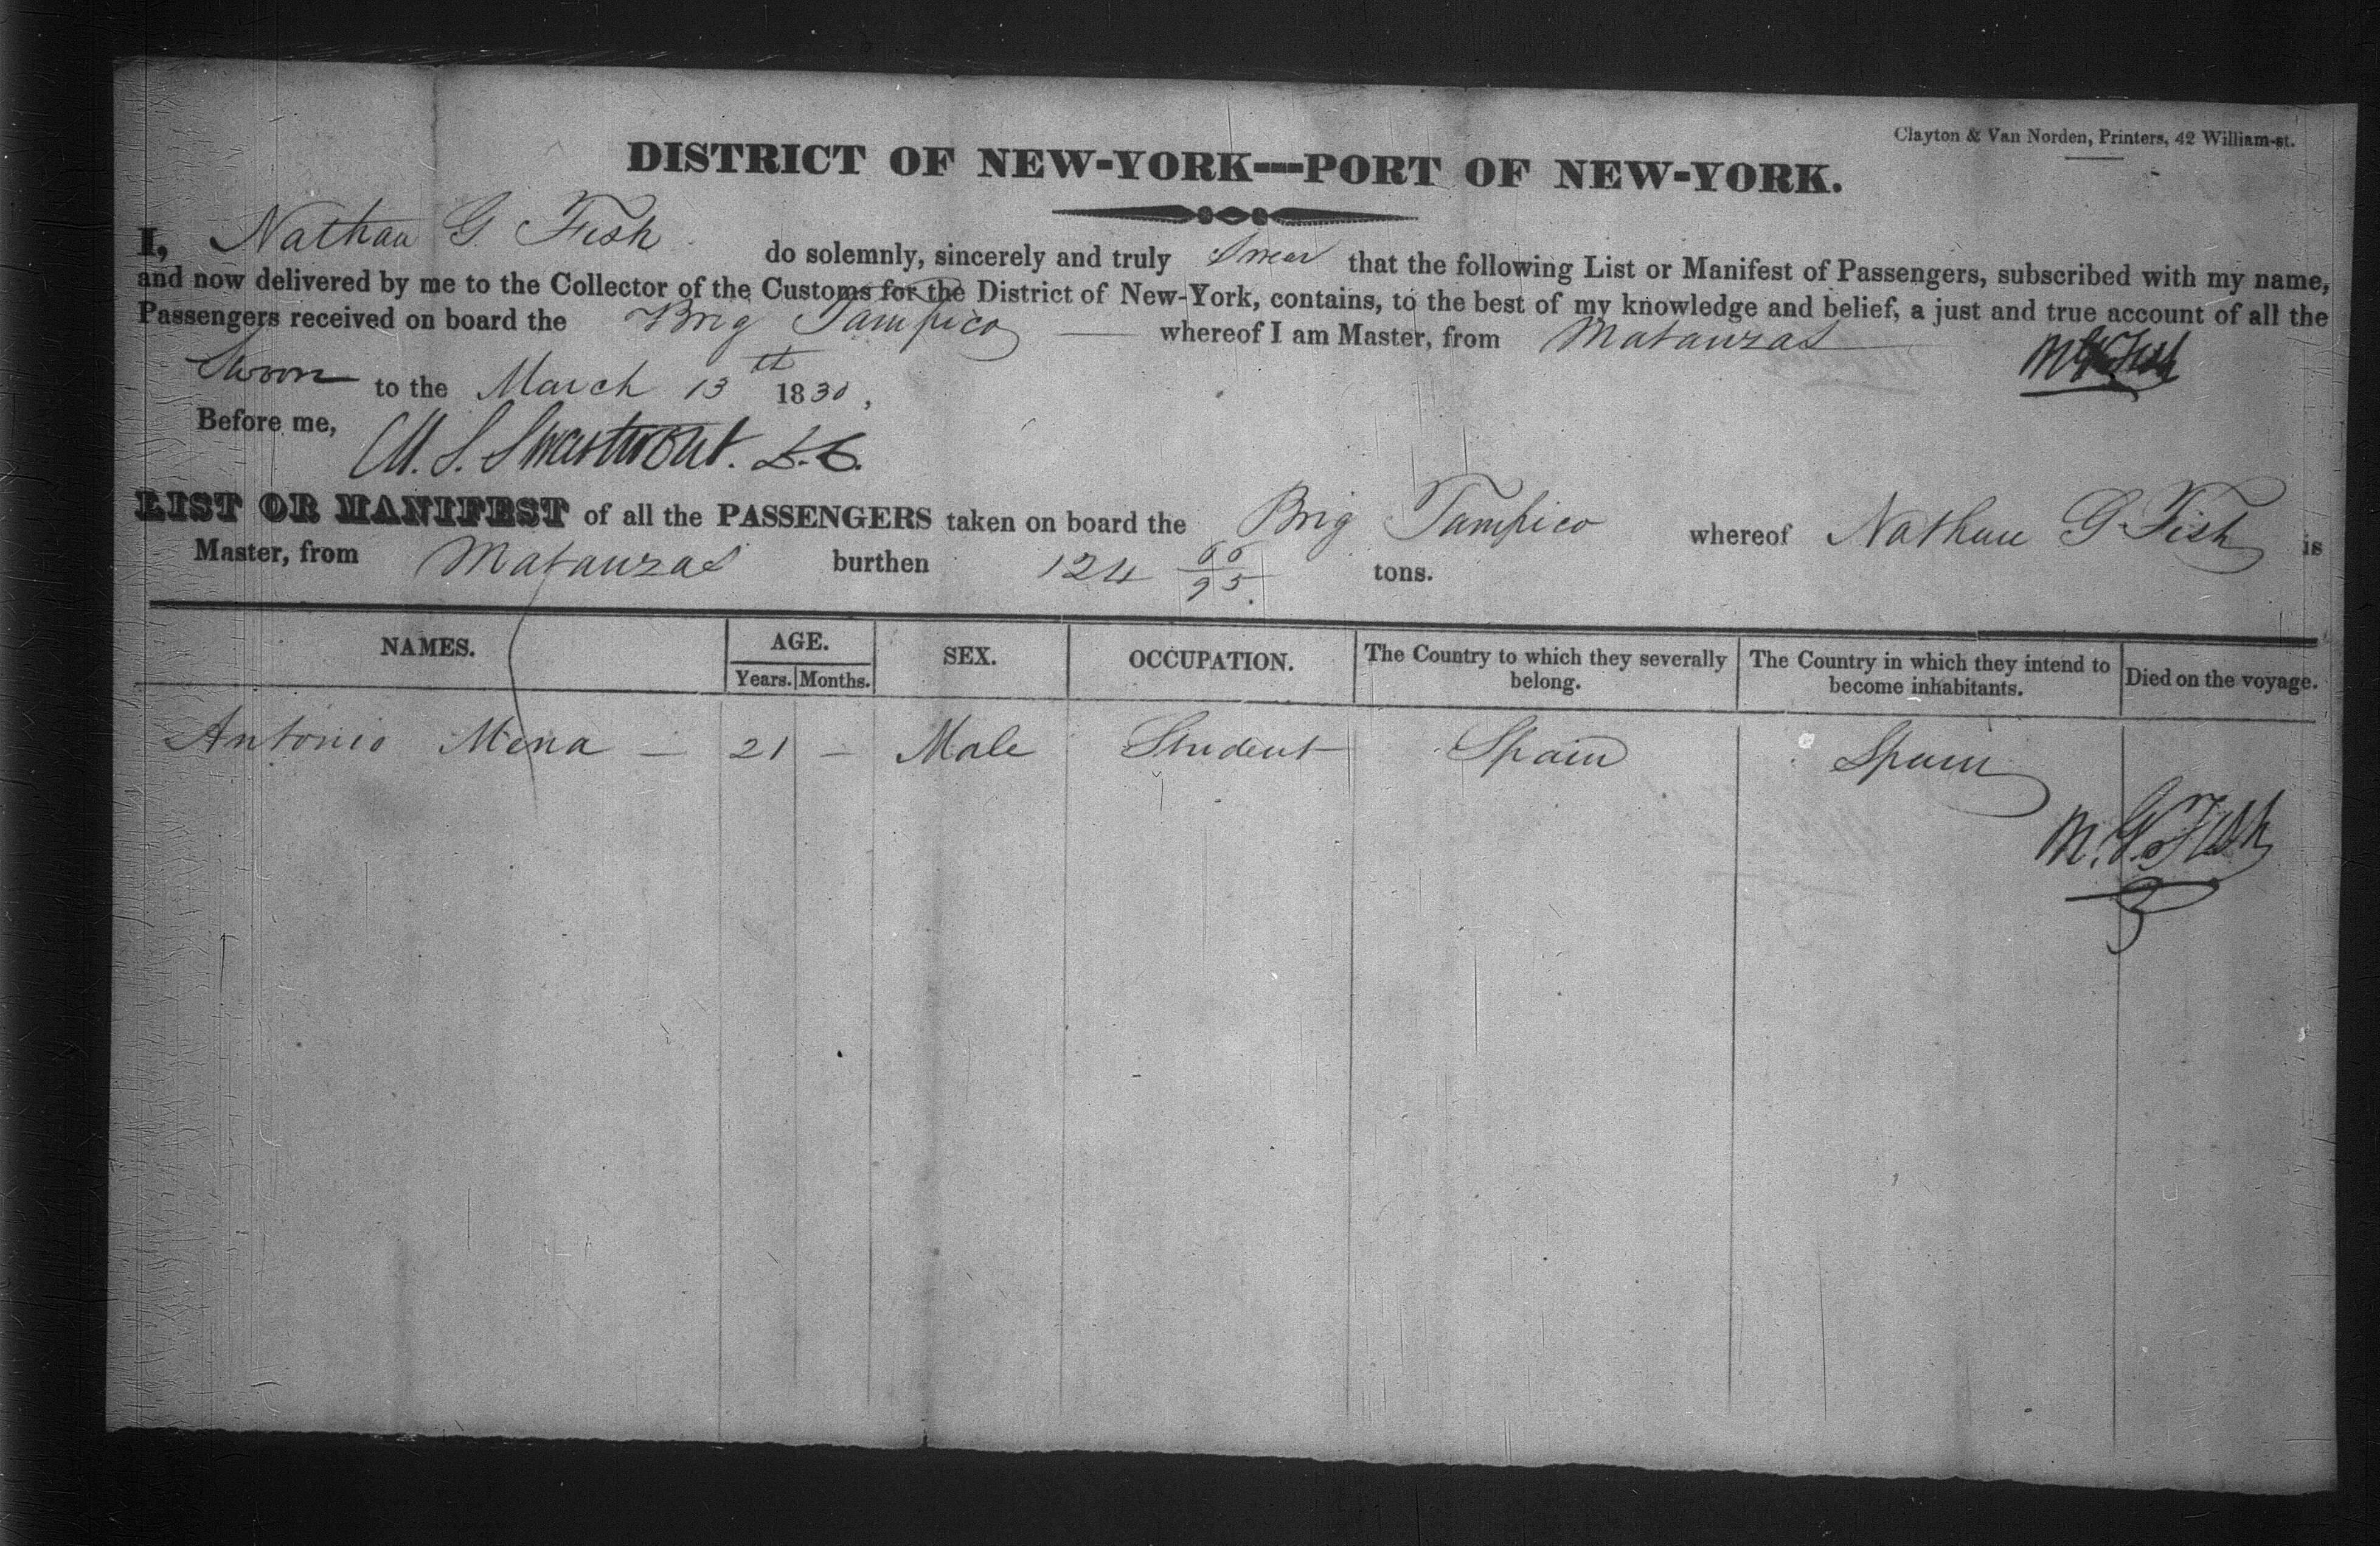 Clayton & Van Norden, Printers, 42 William-st.
DISTRICT OF NEW-YORK---PORT OF NEW-YORK.
I, Nathan G Fish do solemnly, sincerely and truly Swear that the following List or Manifest of Passengers, subscribed with my name,
and now delivered by me to the Collector of the Customs for the District of New-York, contains, to the best of my knowledge and belief, a just and true account of all the
Passengers received on board the Brig Tampico whereof I am Master, from Matanzas
Sworn to the March 13th 1830,
Before me, Swartwout. D.C.
LIST OR MANIFEST of all the PASSENGERS taken on board the Brig Tampico whereof Nathan G Fish is
Master, from Matanzas burthen 124 66/95 tons.
NAMES. AGE. Years. Months. SEX. OCCUPATION. The Country to which they severally belong. The Country in which they intend to become inhabitants. Died on the voyage.
Antonio Mena — 21 — Male Student Spain Spain
N. G. Fish